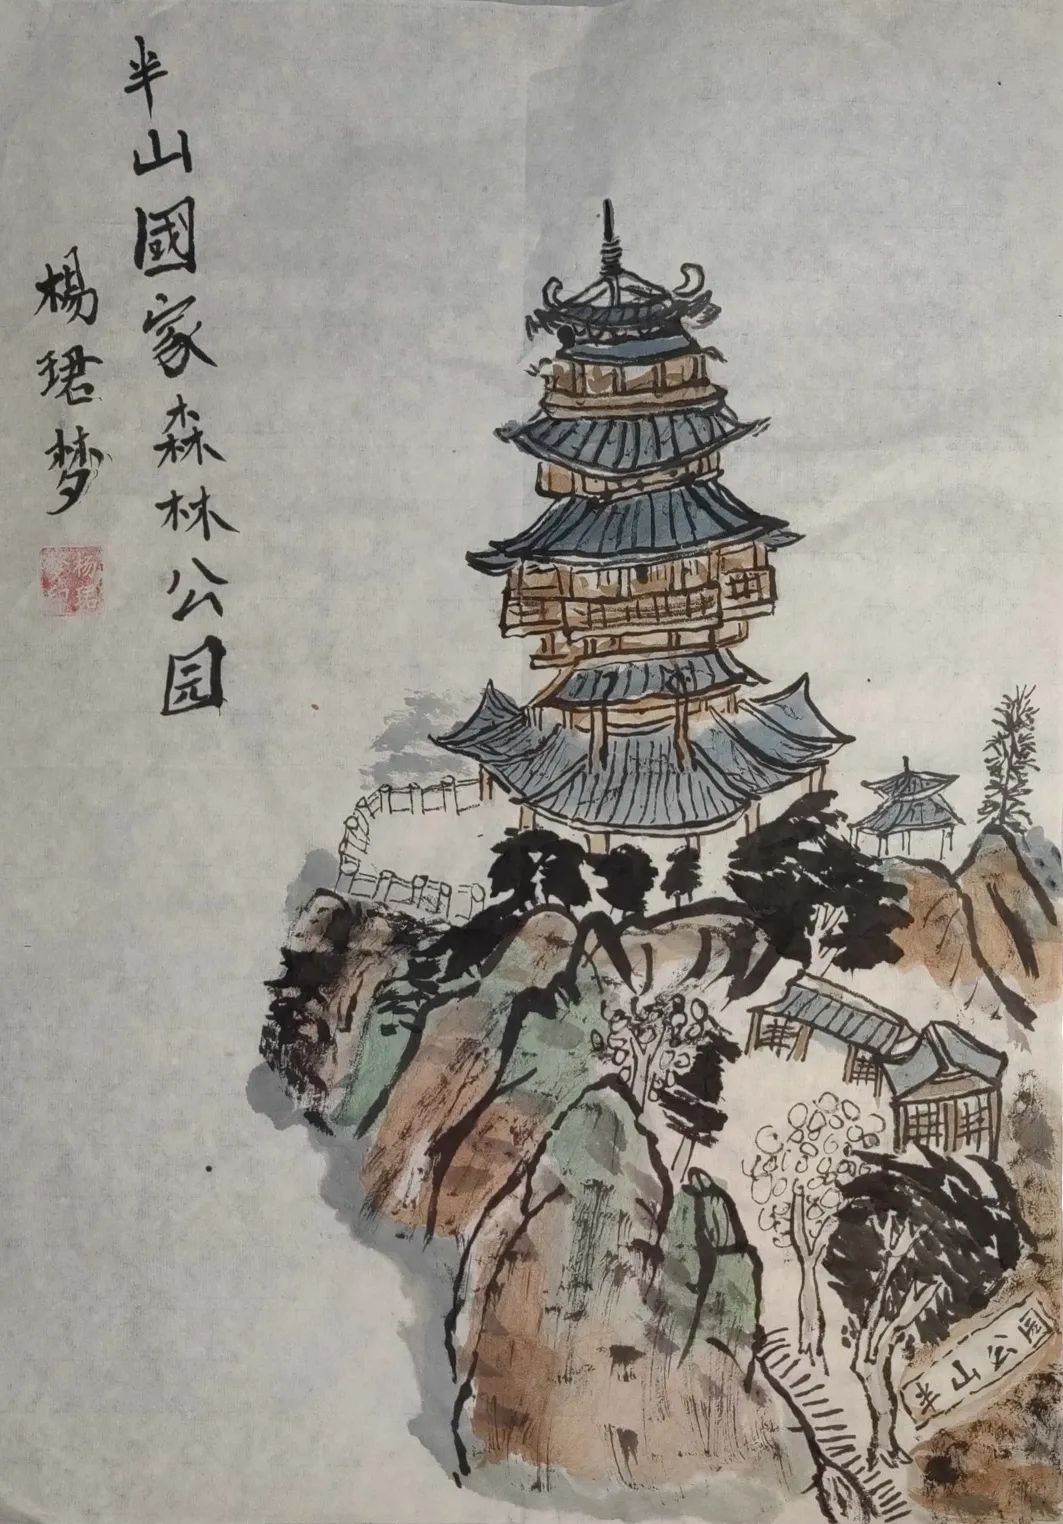 半山國家森林公园
楊珺梦
半山公园